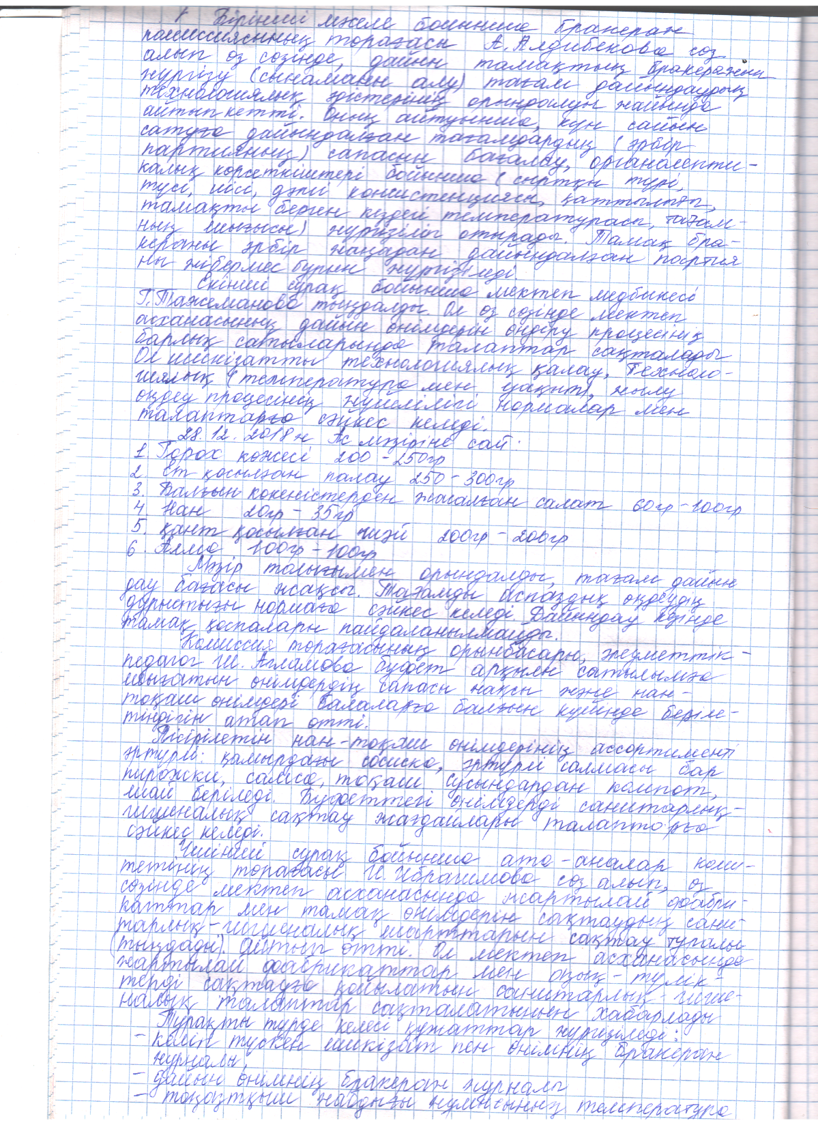 Бірінші мәселе бойынша бракераж
комиссиясының төрағасы А. Алдибекова сөз
алып өз сөзінде, дайын тамақтың бракеражын
жүргізу (сынаманы алу) тағам дайындаудың
технологиялық әдістерінің орындалуы жайында
айтып кетті. Оның айтуынша, күн сайын
сатуға дайындалған тағамдардың (әрбір
партияның) сапасын бағалау, органолепти-
калық көрсеткіштері бойынша (сыртқы түрі,
түсі, иісі, дәмі консистенциясы, қаттылығы,
тамақты берген кездегі температурасы, тағам-
ның шығысы) жүргізіліп отырады. Тамақ бра-
керажы әрбір жаңадан дайындалған партия
ны жібермес бұрын жүргізіледі.
Екінші сұрақ бойынша мектеп медбикесі
Г. Тажеманова тыңдалды Ол өз сөзінде мектеп
асханасының дайын өнімдерін өндіру процесінің
барлық сатыларында талаптар сақталады
Ол шикізатты технологиялық қалау, Техноло-
гиялық (температура мен уақыт), жылу
өңдеу процесінің жүйелілігі нормалар мен
талаптарға сәйкес келеді.
28.12.2018 ж Ас мәзіріне сай:
1. Горох көжесі 200 - 250гр
2. Ет қосылған палау 250 - 300гр
3. Балғын көкөністерден жасалған салат 60гр - 100гр
4. Нан 20гр - 35гр
5. қант қосылған шәй 200гр - 200гр
6. Алма 100гр - 100гр
Мәзір толығымен орындалды, тағам дайын
дау бағасы жақсы. Тағамды аспаздық өңдеудің
дұрыстығы нормаға сәйкес келеді. Дайындау кезінде
тамақ қоспалары пайдаланылмайды.
Комиссия төрағасының орынбасары, әлеуметтік-
педагог Ш. Агламова буфет арқылы сатылымға
шығатын өнімдердің сапасы жақсы және нан-
тоқаш өнімдері балаларға балғын күйінде беріле-
тіндігін атап өтті.
Пісірілетін нан-тоқаш өнімдерінің ассортименті
әртүрлі: қамырдағы сосиска, әртүрлі салмасы бар
пирожки, самса, тоқаш Сусындардан компот,
шай беріледі. Буфеттегі өнімдерді санитарлық-
гигиеналық сақтау жағдайлары талаптарға
сәйкес келеді.
Үшінші сұрақ бойынша ата-аналар коми-
тетінің төрағасы И. Ибрагимова сөз алып, өз
сөзінде мектеп асханасында жартылай фабри-
каттар мен тамақ өнімдерін сақтаудың сани-
тарлық-гигиеналық шарттарын сақтау туралы
(тыңдады) айтып өтті. Ол мектеп асханасында
жартылай фабрикаттар мен азық-түлік-
терді сақтауға қойылатын санитарлық-гигие-
налық талаптар сақталатынын хабарлады
Тұрақты түрде келесі құжаттар жүргізіледі:
- келіп түскен шикізат пен өнімнің бракераж
журналы,
- дайын өнімнің бракераж журналы
- тоңазытқыш жабдығы жұмысының температура